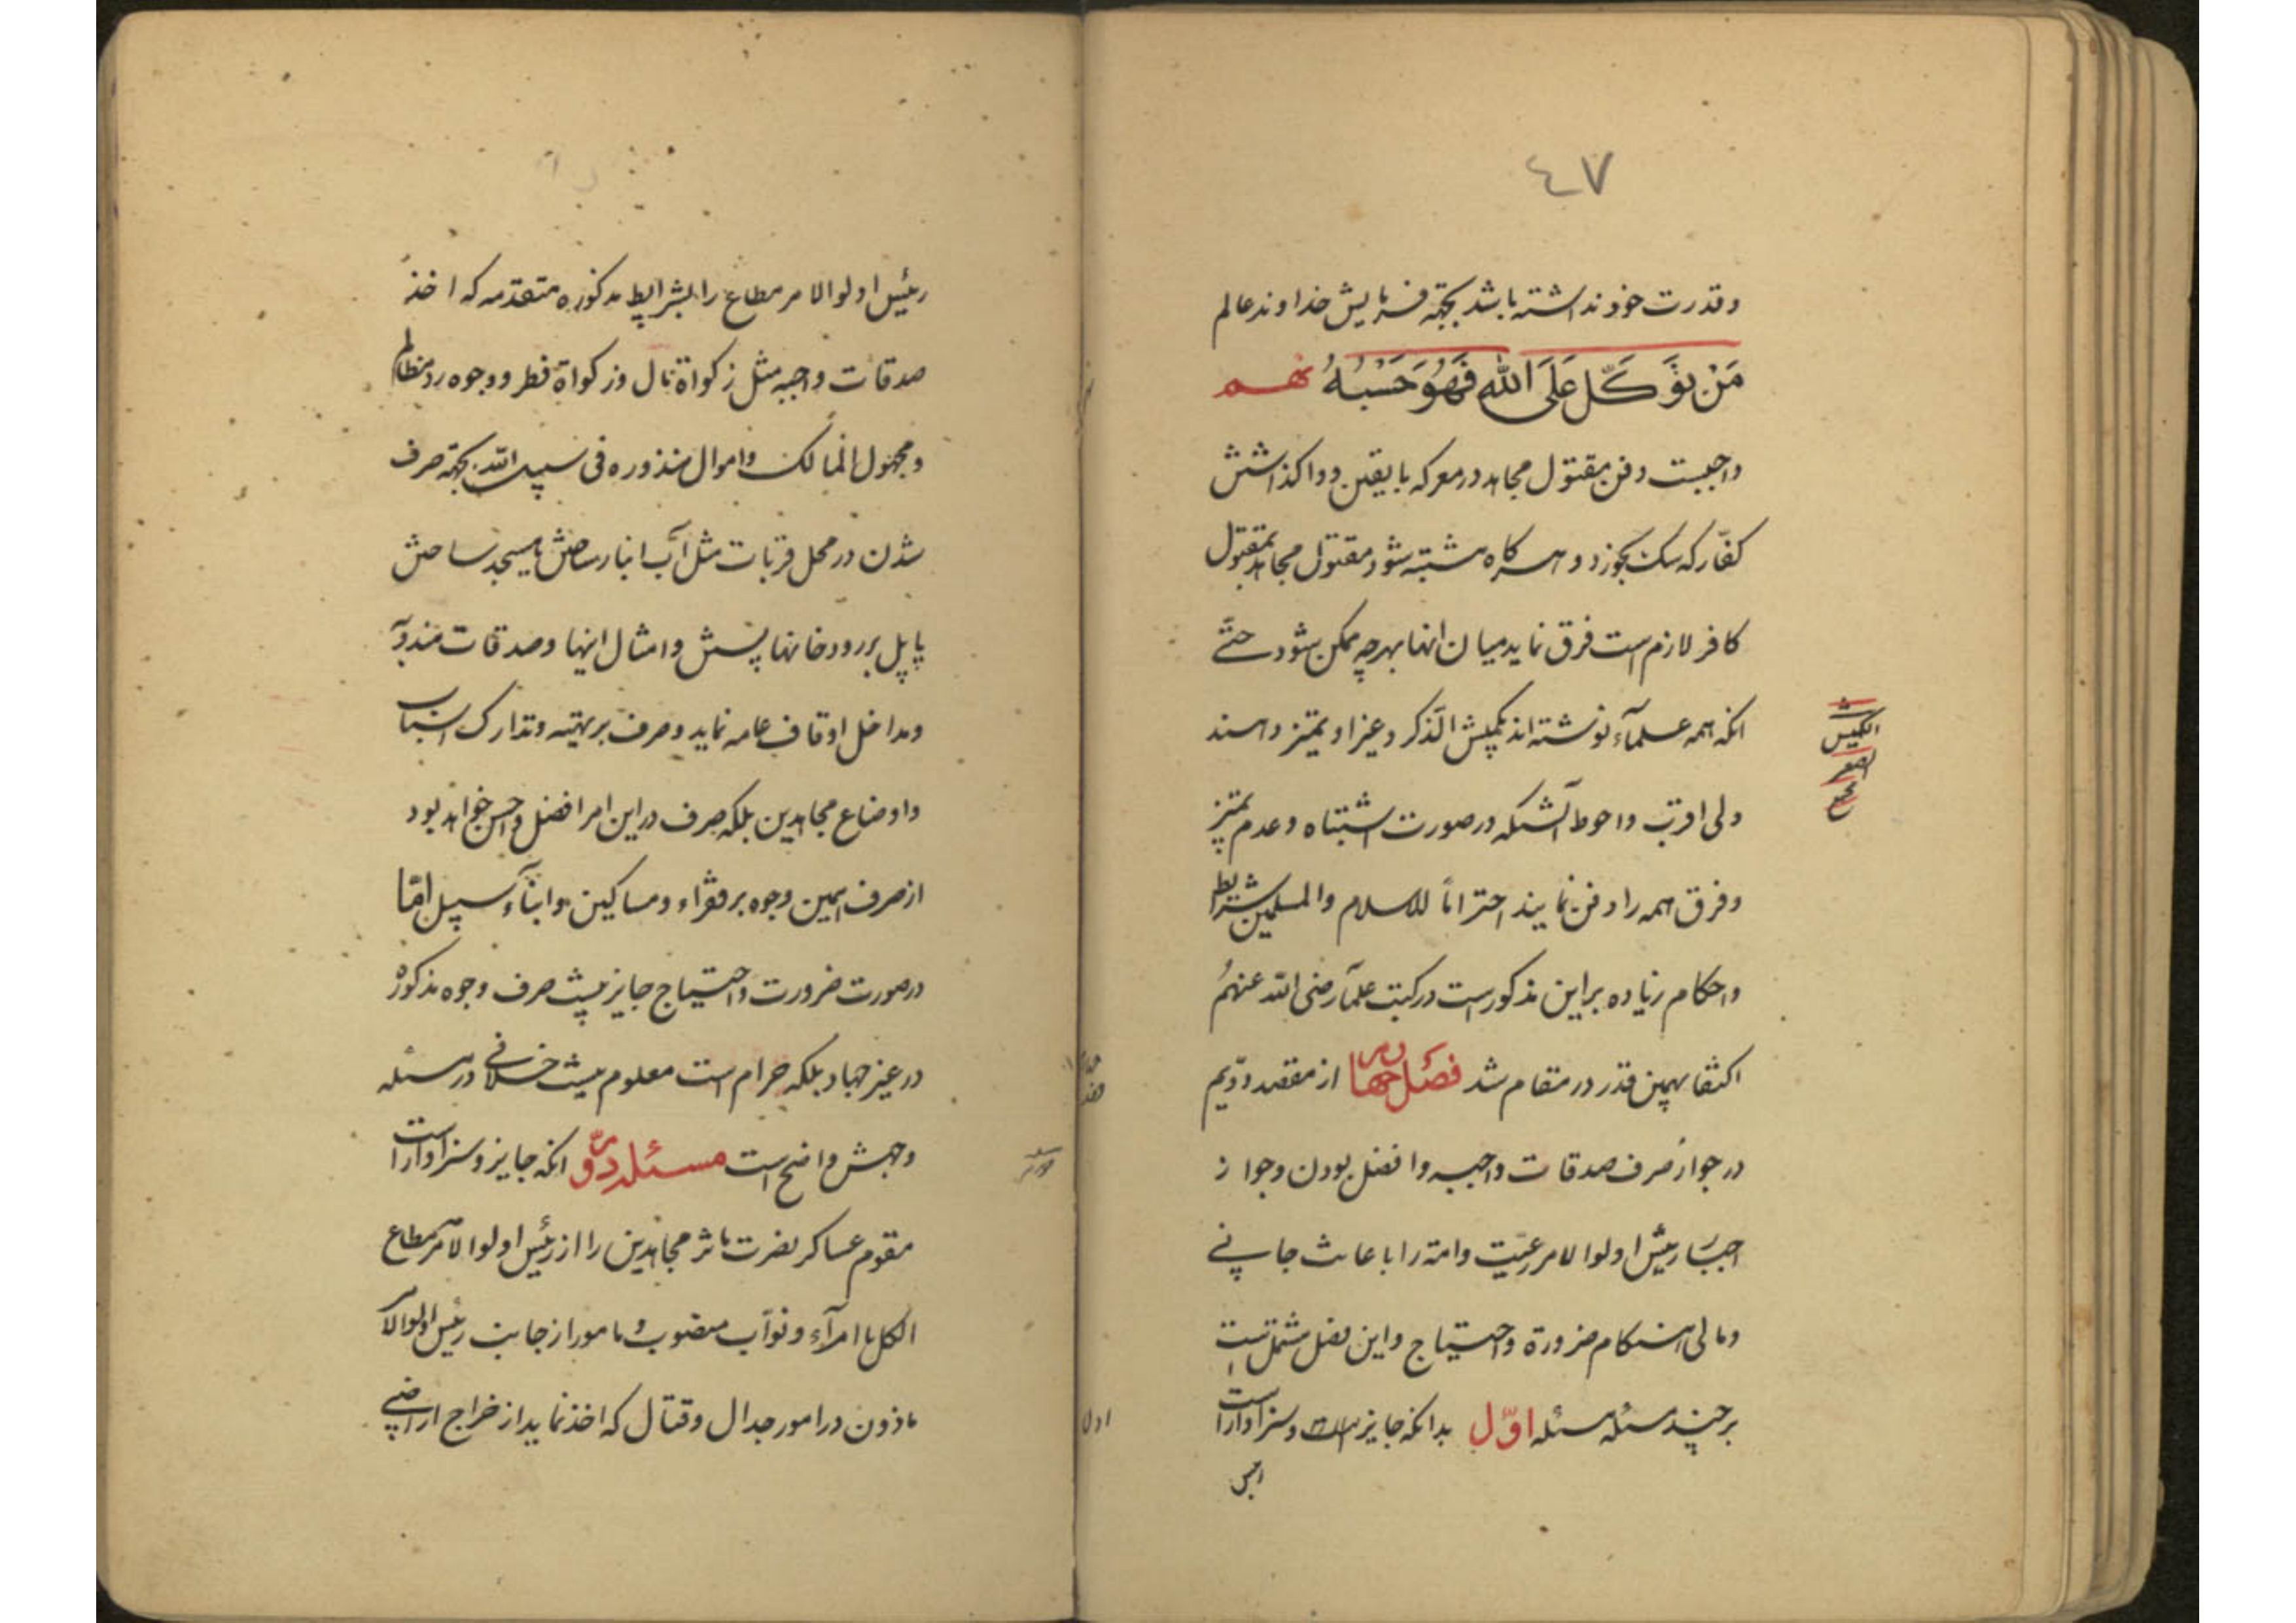 ٤٧
وقدرت خود نداشته باشد بجهة فرمایش خداوند عالم
مَنْ يَتَوَكَّل عَلَى الله فَهُوَ حَسْبُهُ نهم
واجبست دفن مقتول مجاهد در معرکه با یقین و واگذاشتن
کفّار که سک بخورد و هرکاه مشتبه شود مقتول مجاهد بمقتول
کافر لازم است فرق نماید میان انها بهرچه ممکن شود حتّی
انکه همه علمآء نوشته اند بکمیش الذکر و غیر او تمیز دهند
ولی اقرب واحوط آنستکه در صورت اشتباه و عدم تمیز
وفرق همه را دفن نمایند احتراماً للاسلام والمسلمین شرایط
واحکام زیاده براین مذکور است در کتب علمآء رضی الله عنهم
اکتفا بهمین قدر در مقام شد فصل چهارم از مقصد دویم
در جواز صرف صدقات واجبه وافضل بودن وجواز
اجبار رئیس اولوا الامر رعیّت وامة را باعانت جانی
ومالی هنکام ضرورة واحتیاج واین فصل مشتمل است
برچند مسئله مسئله اوّل بدانکه جایز است وسزاوار است
الکمیش
الصغیر
رئیس اولوا الامر مطاع را بشرایط مذکوره متقدمه که اخذ
صدقات واجبه مثل زکواة مال وزکواة فطر ووجوه رد مظالم
ومجهول المالک واموال منذوره فی سبیل الله بجهة صرف
شدن در محل قربات مثل آب انبار ساختن یا مسجد ساختن
یا پل بررودخانها بستن وامثال اینها وصدقات مندوبه
ومداخل اوقاف عامه نماید وصرف برتهیه وتدارک اسباب
واوضاع مجاهدین بلکه صرف در این امر افضل واحسن خواهد بود
از صرف همین وجوه بر فقراء ومساکین وابنآء سبیل امّا
در صورت ضرورت واحتیاج جایز نیست صرف وجوه مذکوره
در غیر جهاد بلکه حرام است معلوم نیست خلافی در مسئله
وجهش واضح است مسئله دوّم انکه جایز وسزاوار است
مقوم عساکر نصرت ماثر مجاهدین را از رئیس اولوا الامر مطاع
الکل یا امرآء ونوّاب منصوب ومامور از جانب رئیس اولوا الامر
ماذون در امور جدال وقتال که اخذ نماید از خراج اراضی